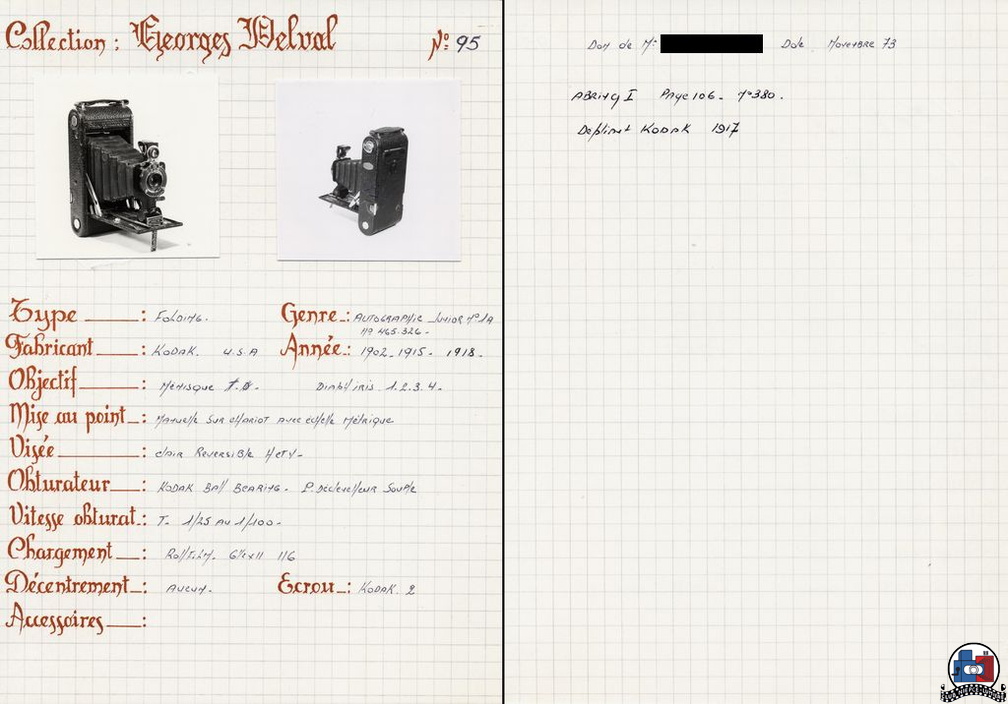 Collection : Georges Delval Nº 95
Type : Folding.
Genre : Autographic Junior nº 1A
nº 465.326 -
Fabricant : Kodak. U.S.A
Année : 1902 - 1915 - 1918 -
Objectif : Ménisque Diaph/iris 1.2.3.4-
Mise au point : Manuelle sur chariot avec échelle métrique
Visée : clair Reversible
Obturateur : Kodak Ball Bearing - P. déclencheur Souple
Vitesse obturat. : T. 1/25 au 1/100-
Chargement : Roll film. 6½x11 116
Décentrement : Aucun.
Ecrou : Kodak. 2
Accessoires :
Don de Mr Date Novembre 73
Abring I Page 106 - nº 380.
Dépliant Kodak 1917